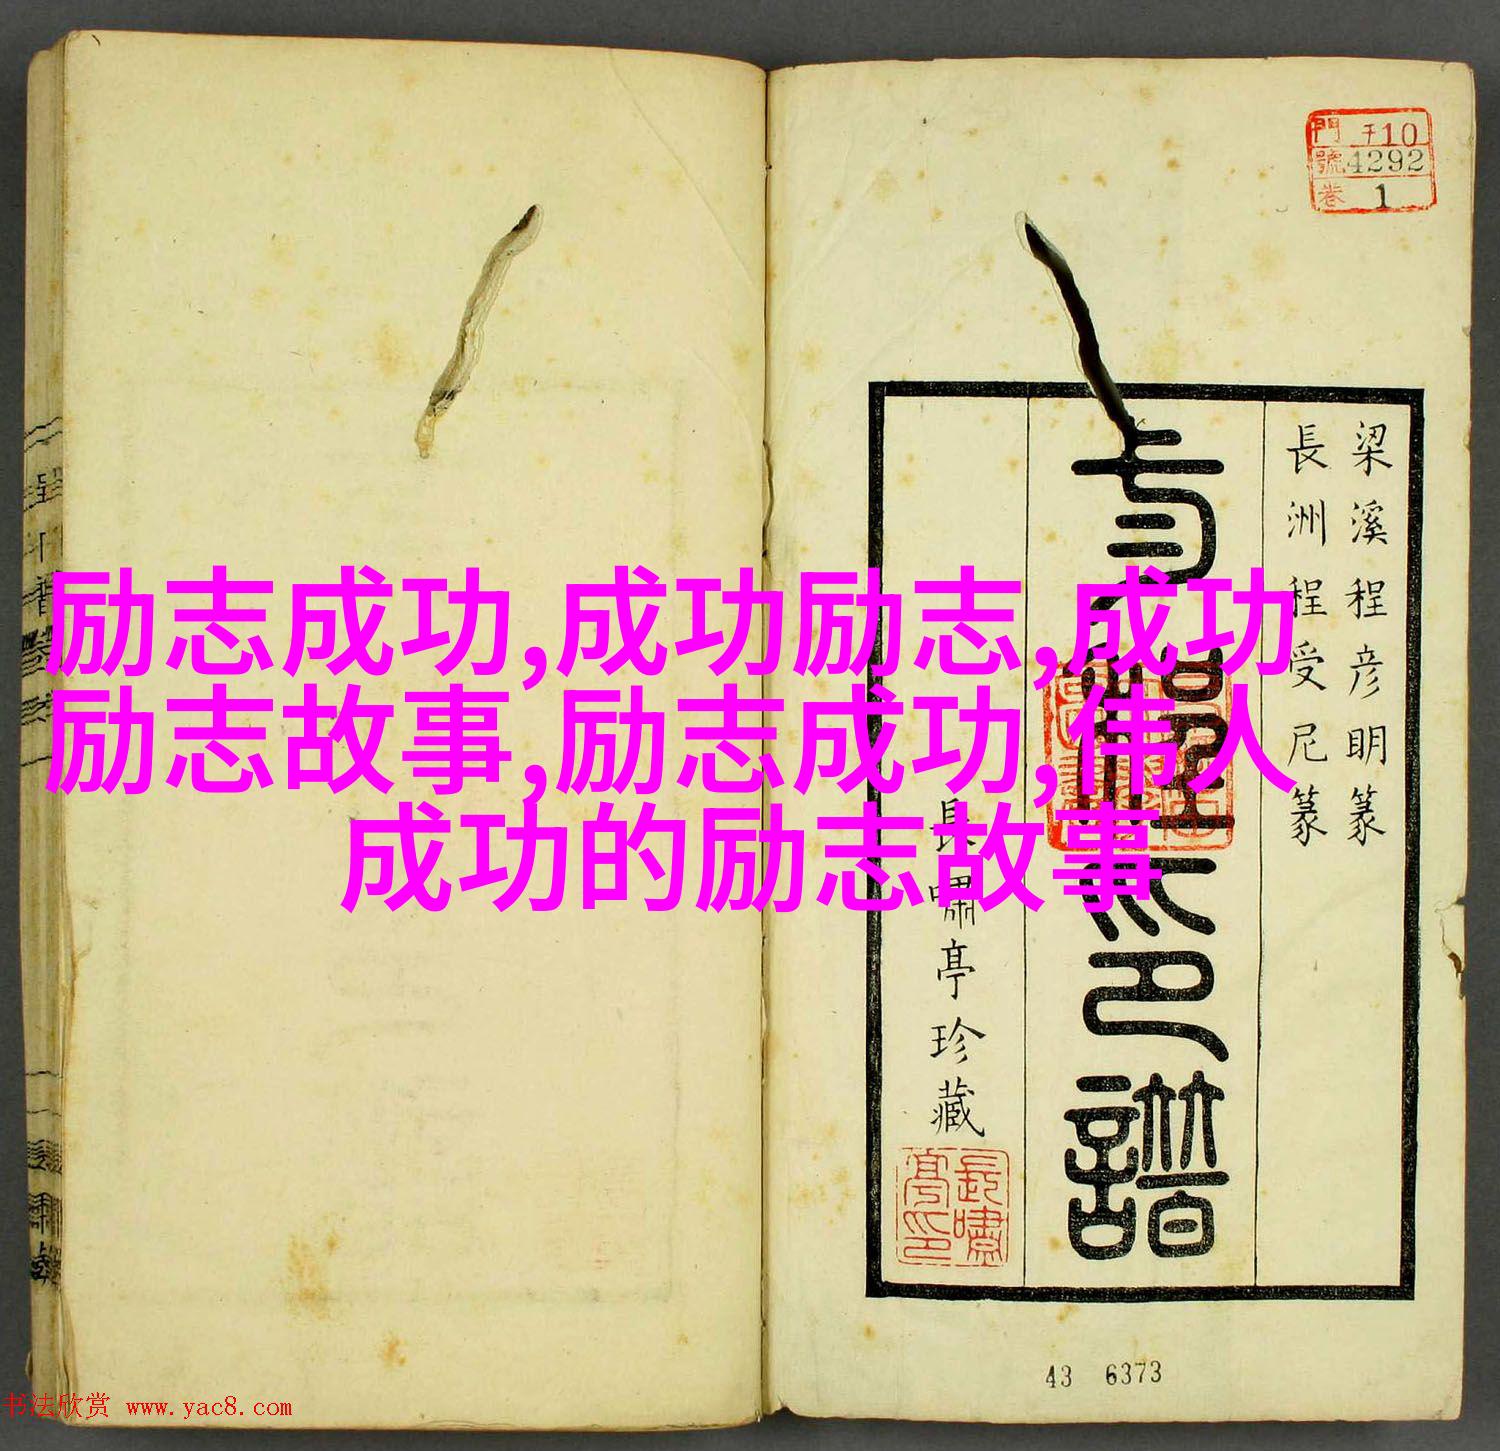 門 子10
號 4292
卷 1
梁溪程彦明篆
長洲程受尼篆
印譜
長嘯亭珍藏
長嘯亭印
43 6373
励志成功,成功励志,成功
励志故事,励志成功,伟人
成功的励志故事
书法欣赏 www.yac8.com